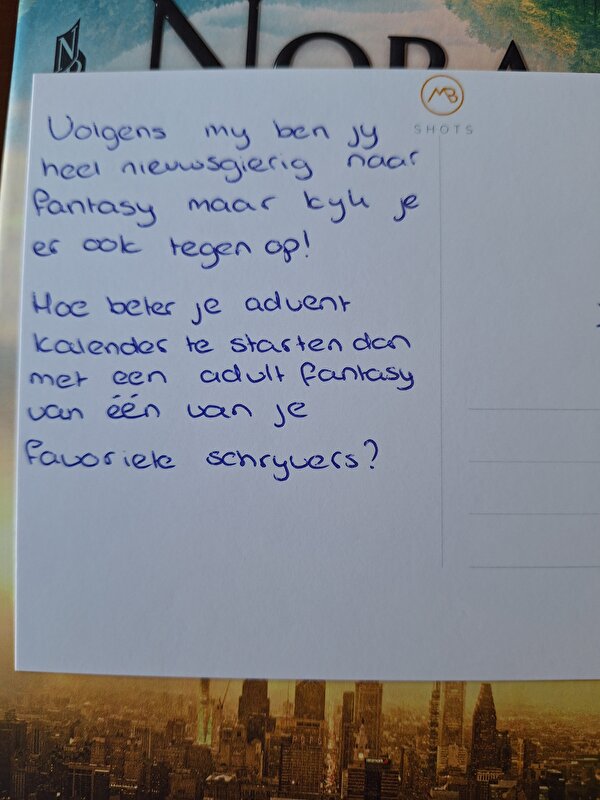 NORA
MB
SHOTS
Volgens my ben jy
heel nieuwsgierig naar
fantasy maar kyk je
er ook tegen op!
Hoe beter je advent
kalender te starten dan
met een adult fantasy
van één van je
favoriete schryvers?